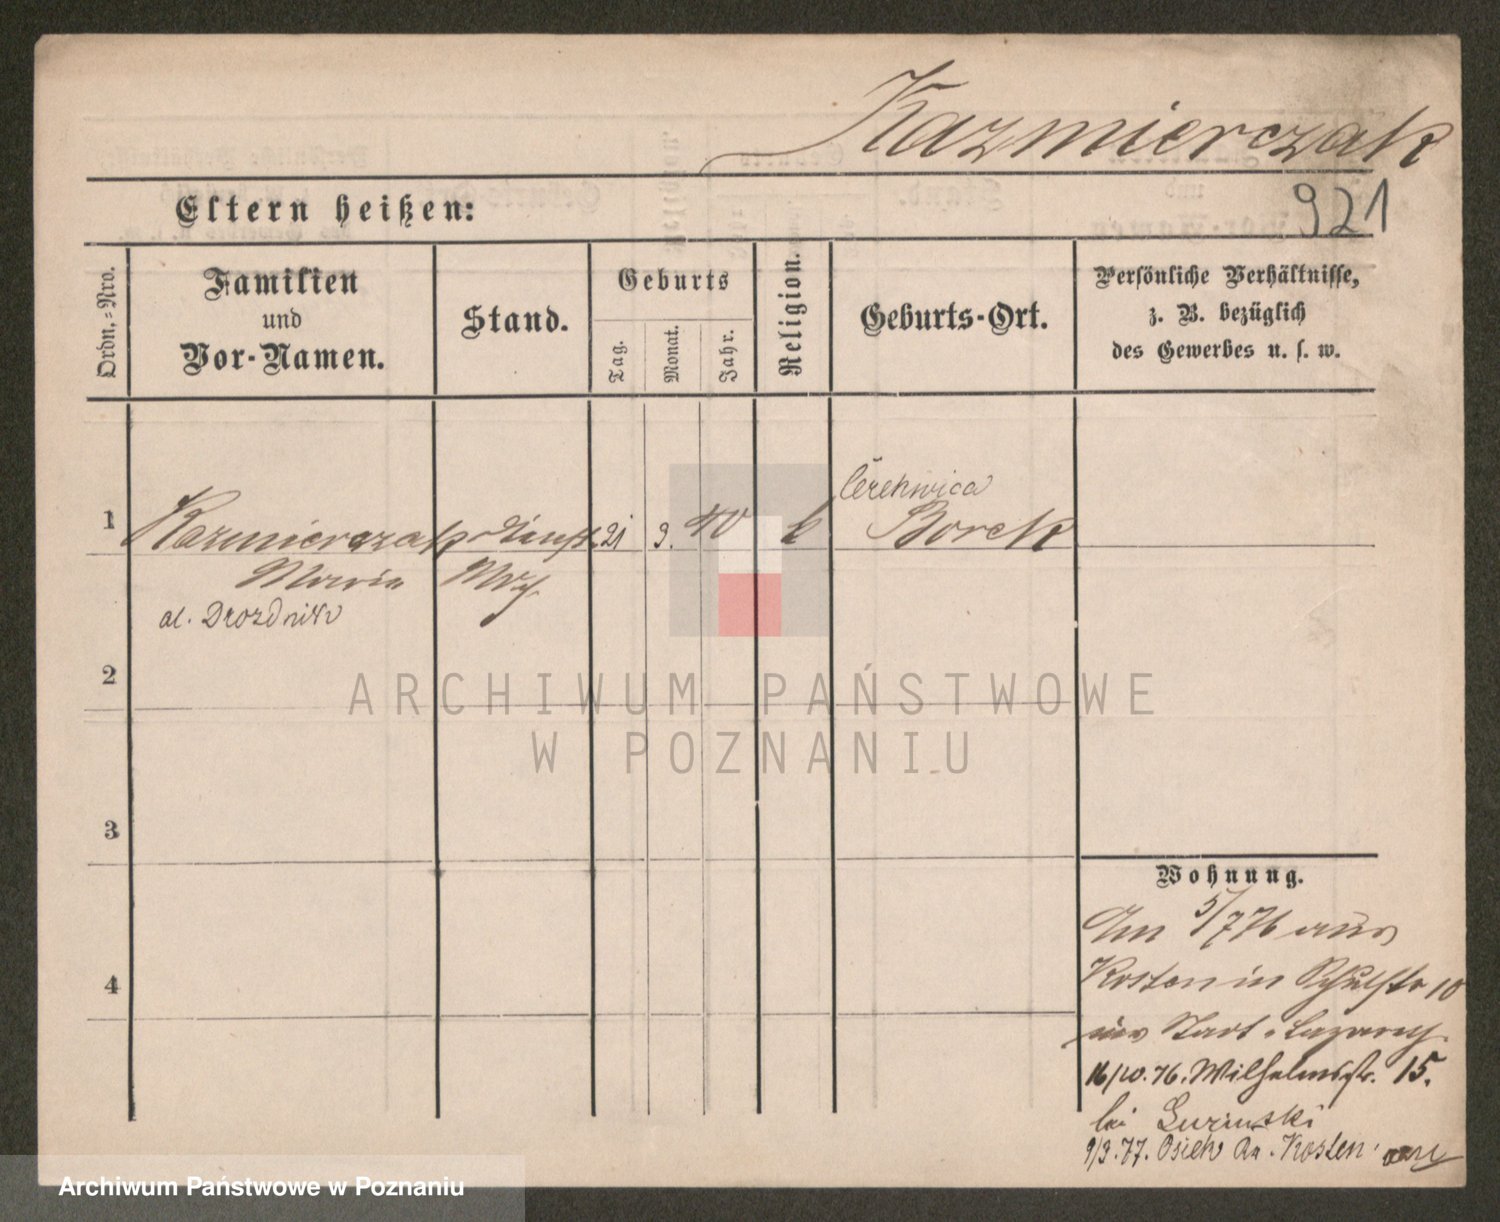 Kazmierczak
Eltern heißen:
921
Ordn.-Nro.
Familien
und
Vor-Namen.
Stand.
Geburts
Tag.
Monat.
Jahr.
Religion.
Geburts-Ort.
Persönliche Verhältnisse,
z. B. bezüglich
des Gewerbes u. s. w.
Cerekwica
1
Kazmierczak
Dienst
21
9.
k
Borek
Maria
al. Drozdnik
2
ARCHIWUM PAŃSTWOWE
W POZNANIU
3
4
Wohnung.
Am 5/7 76 aus
Kosten in Schulstr 10
ins Stadt. Lazareth
16/10. 76. Wilhelmstr. 15.
bei
9/3. 77. Osiek Kr. Kosten
Archiwum Państwowe w Poznaniu